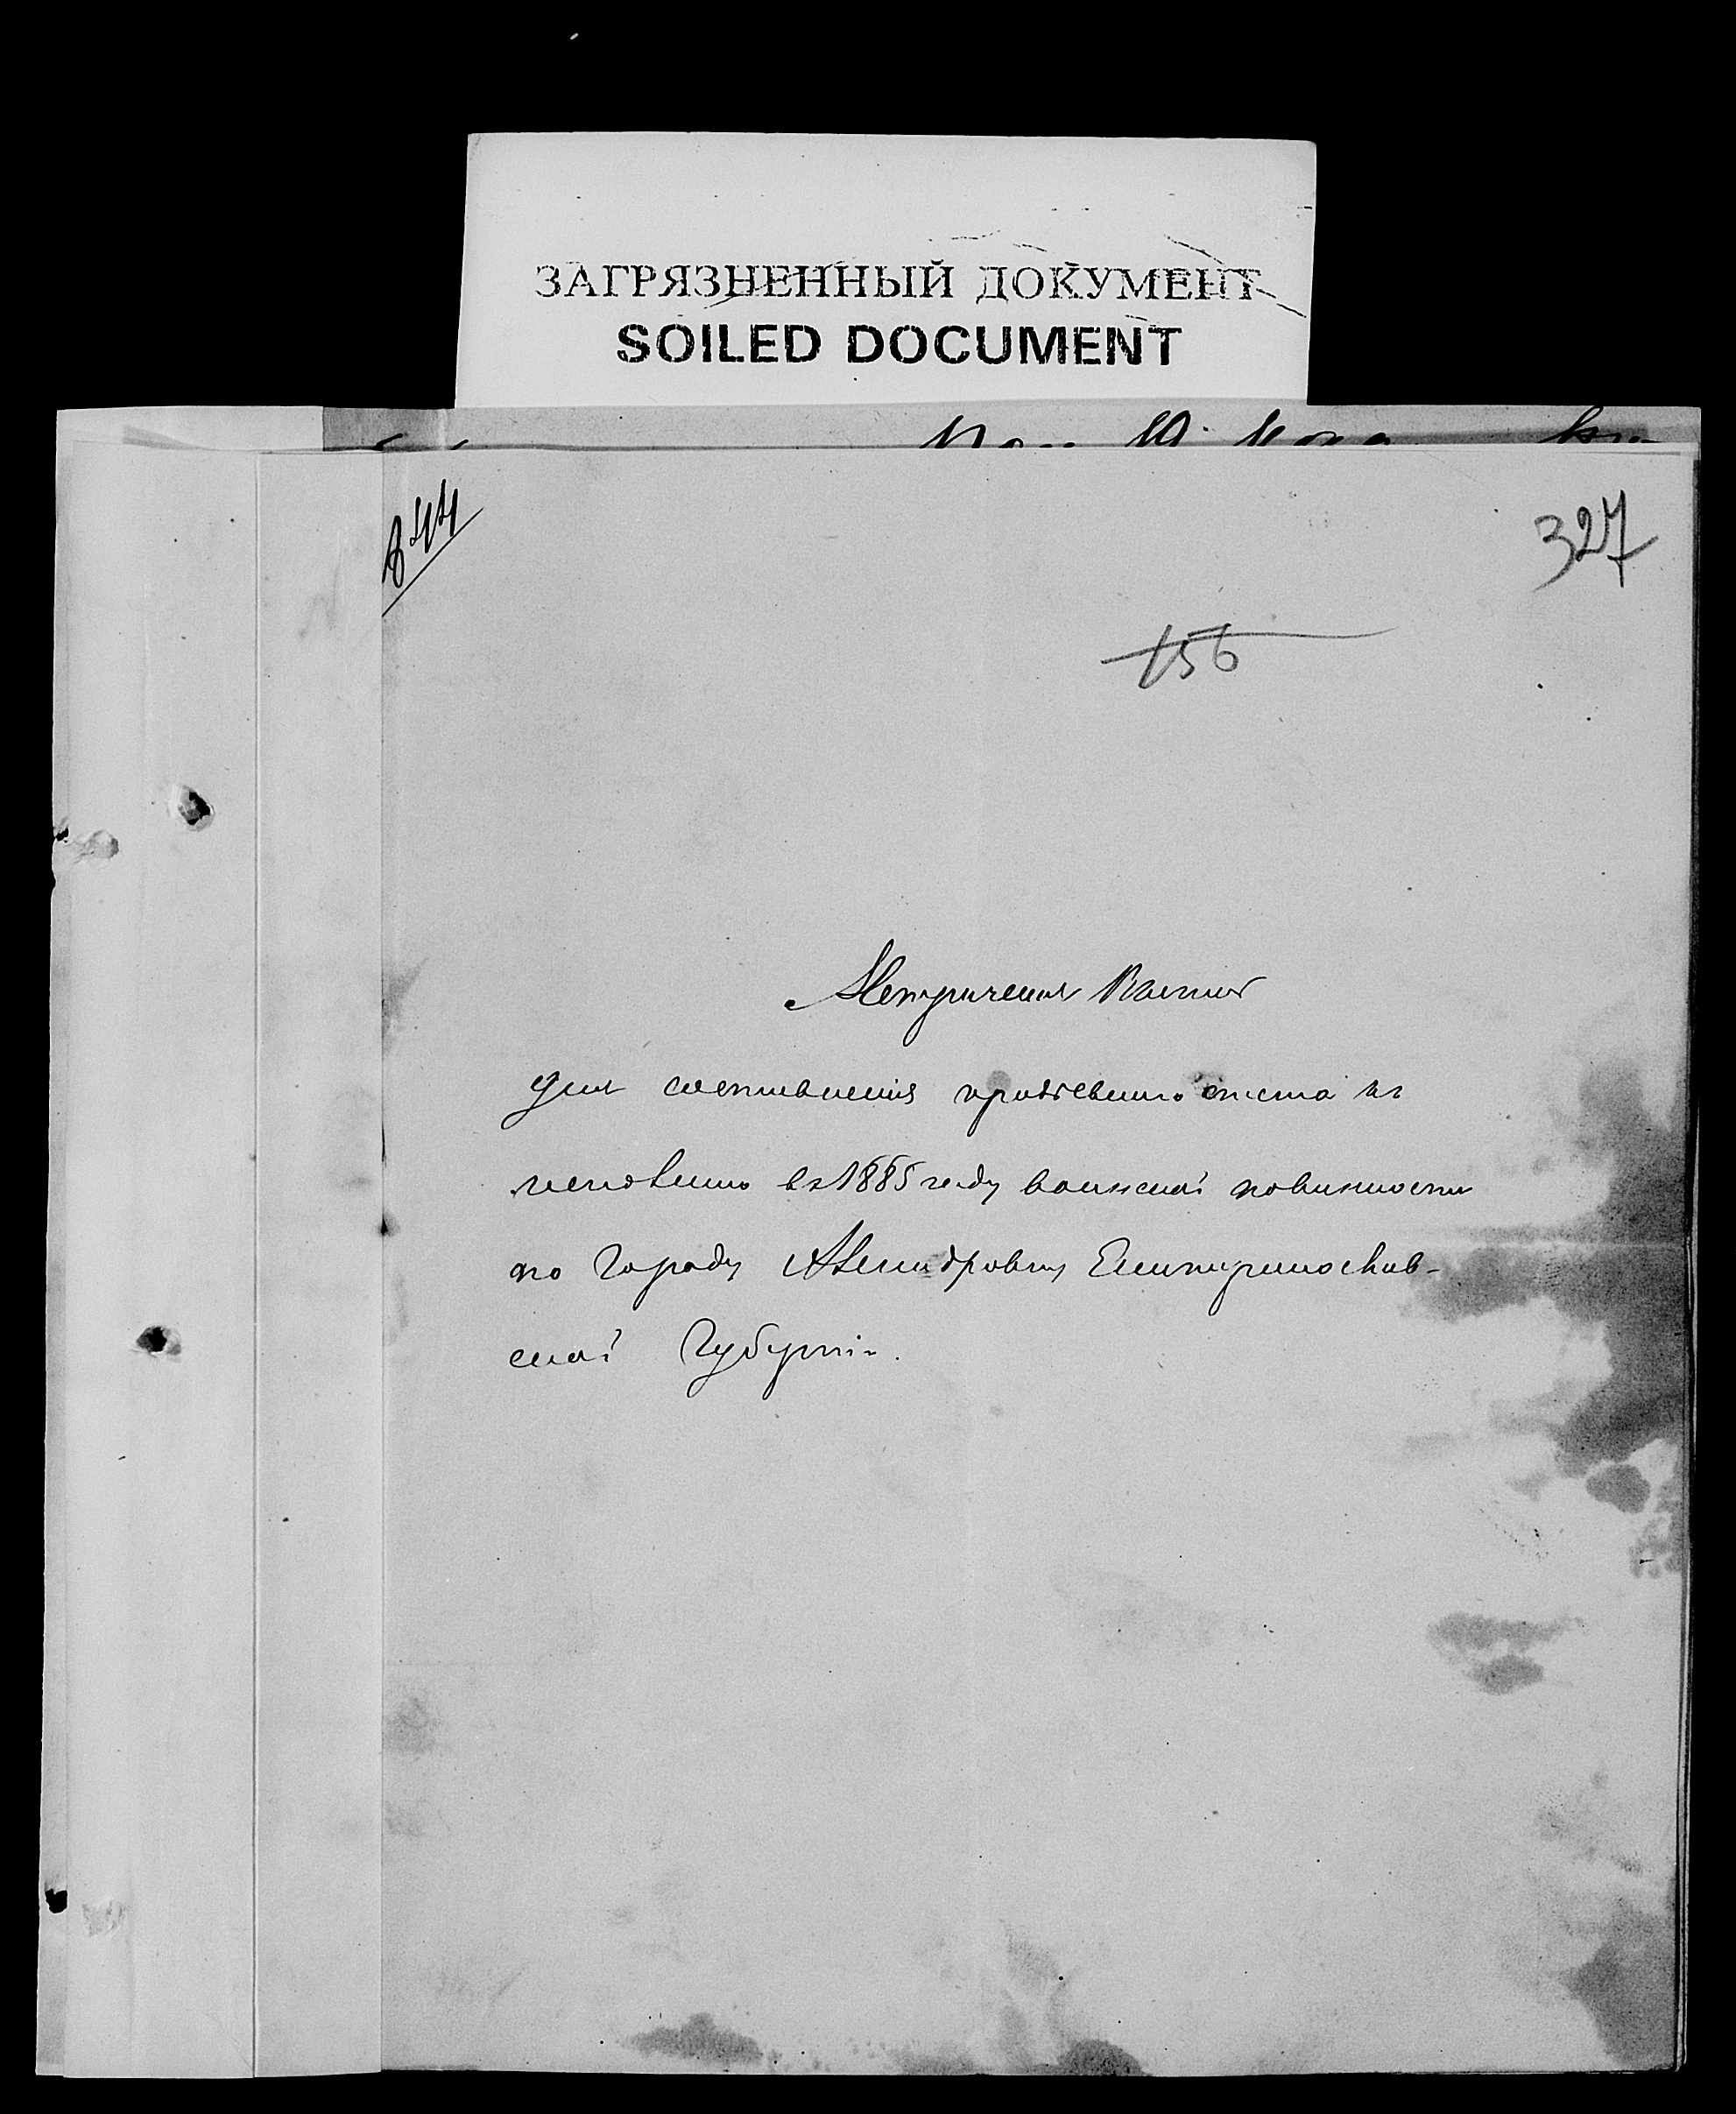 ЗАГРЯЗНЕННЫЙ ДОКУМЕНТ
SOILED DOCUMENT
844
327
156
Метрическая Выпись
для составленія призывнаго списка къ
исполненію въ 1885 году воинской повинности
по городу Александровску Екатеринослав-
ской Губерніи.